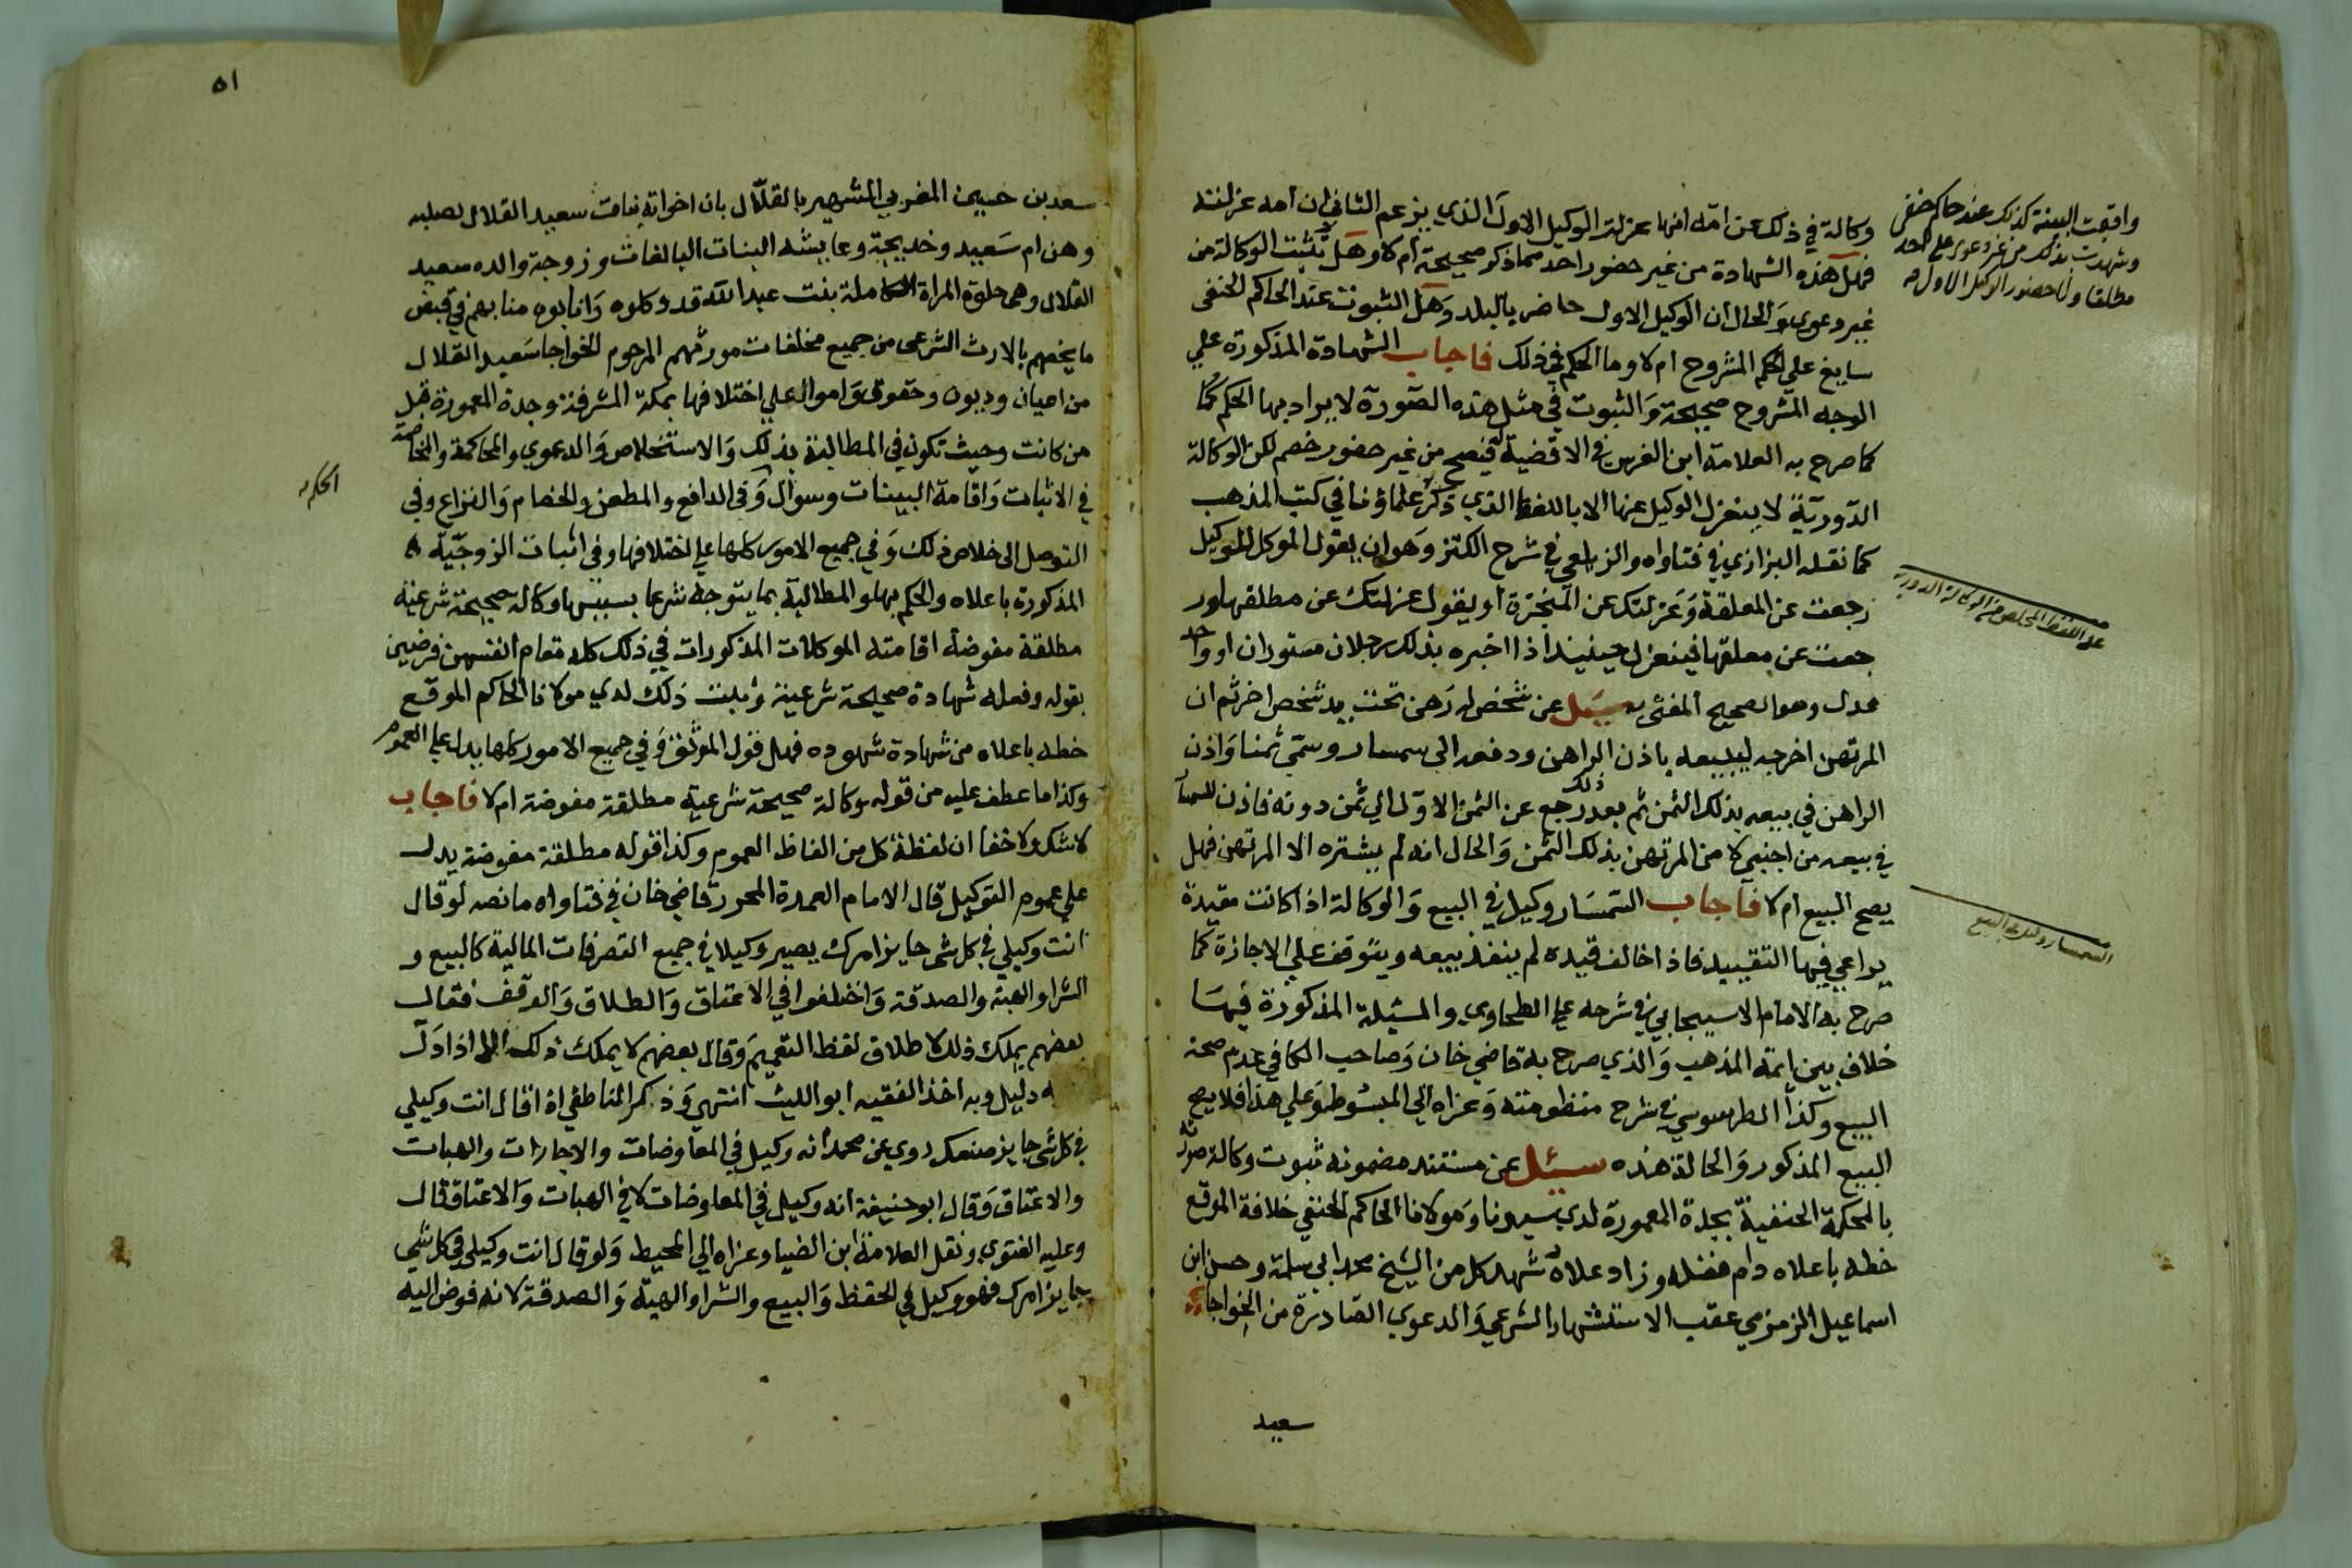 وكالة في ذلك عن امه انها عزلت الوكيل الاول الذي يزعم الثاني ان امه عزلته
فهل هذه الشهادة من غير حضور احد مما ذكر صحيحة ام لا وهل تثبت الوكالة من
غير دعوى والحال ان الوكيل الاول حاضر بالبلد وهل الثبوت عند الحاكم الحنفي
سايغ على الحكم المشروح ام لا وما الحكم في ذلك فاجاب الشهادة المذكورة علي
الوجه المشروح صحيحة والثبوت في مثل هذه الصورة لا يراد بها الحكم كما
كما صرح به العلامة ابن الغرس في الاقضية فيصح من غير حضور خصم لكن الوكالة
الدورية لا ينعزل الوكيل عنها الا باللفظ الذي ذكره علماؤنا في كتب المذهب
كما نقله البزازي في فتاواه والزيلعي في شرح الكنز وهو ان يقول الموكل للوكيل
رجعت عن المعلقة وعزلتك عن المنجزة او يقول عزلتك عن مطلقها ور
جعت عن معلقها فينعزل حينيذ اذا اخبره بذلك رجلان مستوران او واحد
عدل وهو الصحيح المفتى به سيل عن شخص له رهن تحت يد شخص اخر ثم ان
المرتهن اخرجه ليبيعه باذن الراهن ودفعه الى سمسار وسمى ثمنا واذن
الراهن في بيعه بذلك الثمن ثم بعد ذلك رجع عن الثمن الاول الي ثمن دونه فاذن للسمسار
في بيعه من اجنبي لا من المرتهن بذلك الثمن والحال انه لم يشتره الا المرتهن فهل
يصح البيع ام لا فاجاب السمسار وكيل في البيع والوكالة اذا كانت مقيدة
يراعي فيها التقييد فاذا خالف قيده لم ينفذ بيعه ويتوقف علي الاجازة كما
صرح به الامام الاسبيجابي في شرحه على الطحاوي والمسئلة المذكورة فيها
خلاف بين ايمة المذهب والذي صرح به قاضي خان وصاحب الكافي عدم صحة
البيع وكذا الطرسوسي في شرح منظومته وعزاه الي المبسوط وعلي هذا فلا يصح
البيع المذكور والحالة هذه سئل عن مستند مضمونه ثبوت وكالة صورته
بالمحكمة الحنفية بجدة المعمورة لدي سيدنا ومولانا الحاكم الحنفي خلافة الموقع
خطه باعلاه دام فضله وزاد علاه شهد كل من الشيخ محمد ابي سلمة وحسن ابن
اسماعيل الزمزمي عقب الاستشهاد الشرعي والدعوي الصادرة من الخواجا
سعيد
واقيمت البينة كذلك عند حاكم حنفي
وشهدت بذلك من غير دعوى على احد
مطلقا ولا حضور الوكيل الاول
على اللفظ المخلص من الوكالة الدورية
السمسار وكيل في البيع
٥١
سعد بن حسين المغربي الشهير بالقلال بان اخواته بنات سعيد القلال لصلبه
وهن ام سعيد وخديجة وعايشه البنات البالغات وزوجة والده سعيد
القلال وهي حلوة المراة الكاملة بنت عبد الله قد وكلوه وانابوه منابهم في قبض
ما يخصهم بالارث الشرعى من جميع مخلفات مورثهم المرحوم الخواجا سعيد القلال
من اعيان وديون وحقوق واموال علي اختلافها بمكة المشرفة وجدة المعمورة قبل
من كانت وحيث تكون في المطالبة بذلك والاستخلاص والدعوي والمحاكمة والمخاصمة
في الاثبات واقامة البينات وسؤال وفى الدافع والمطعن والخصام والنزاع وفي
الحكم
التوصل الى خلاص ذلك وفي جميع الامور كلها على اختلافها وفى اثبات الزوجية
المذكورة باعلاه والحكم بها والمطالبة بما يتوجه شرعا بسببها وكالة صحيحة شرعية
مطلقة مفوضة اقامته الموكلات المذكورات في ذلك كله مقام انفسهن فرضين
بقوله وفعله شهادة صحيحة شرعية وثبت ذلك لدي مولانا الحاكم الموقع
خطه باعلاه من شهادة شهوده فهل قول الموثق وفي جميع الامور كلها يدل على العموم
وكذا ما عطف عليه من قوله وكالة صحيحة شرعية مطلقة مفوضة ام لا فاجاب
لا شك ولا خفا ان لفظة كل من الفاظ العموم وكذا قوله مطلقة مفوضة يدل
علي عموم التوكيل قال الامام العمدة المحرر قاضي خان في فتاواه ما نصه لو قال
انت وكيلي في كل شى جايز امرك يصير وكيلا في جميع التصرفات المالية كالبيع و
الشرا والهبة والصدقة واختلفوا في الاعتاق والطلاق والوقف فقال
بعضهم يملك ذلك لاطلاق لفظ التعميم وقال بعضهم لا يملك ذلك الا اذا دل
به دليل وبه اخذ الفقيه ابو الليث انتهى وذكر الناطفي اذا قال انت وكيلي
في كل شي جايز صنعك روي عن محمد انه وكيل في المعاوضات والاجارات والهبات
والاعتاق وقال ابو حنيفة انه وكيل في المعاوضات لا في الهبات والاعتاق قال
وعليه الفتوي ونقل العلامة ابن الضيا وعزاه الي المحيط ولو قال انت وكيلي في كل شي
جايز امرك فهو وكيل في الحفظ والبيع والشرا والهبة والصدقة لانه فوض اليه